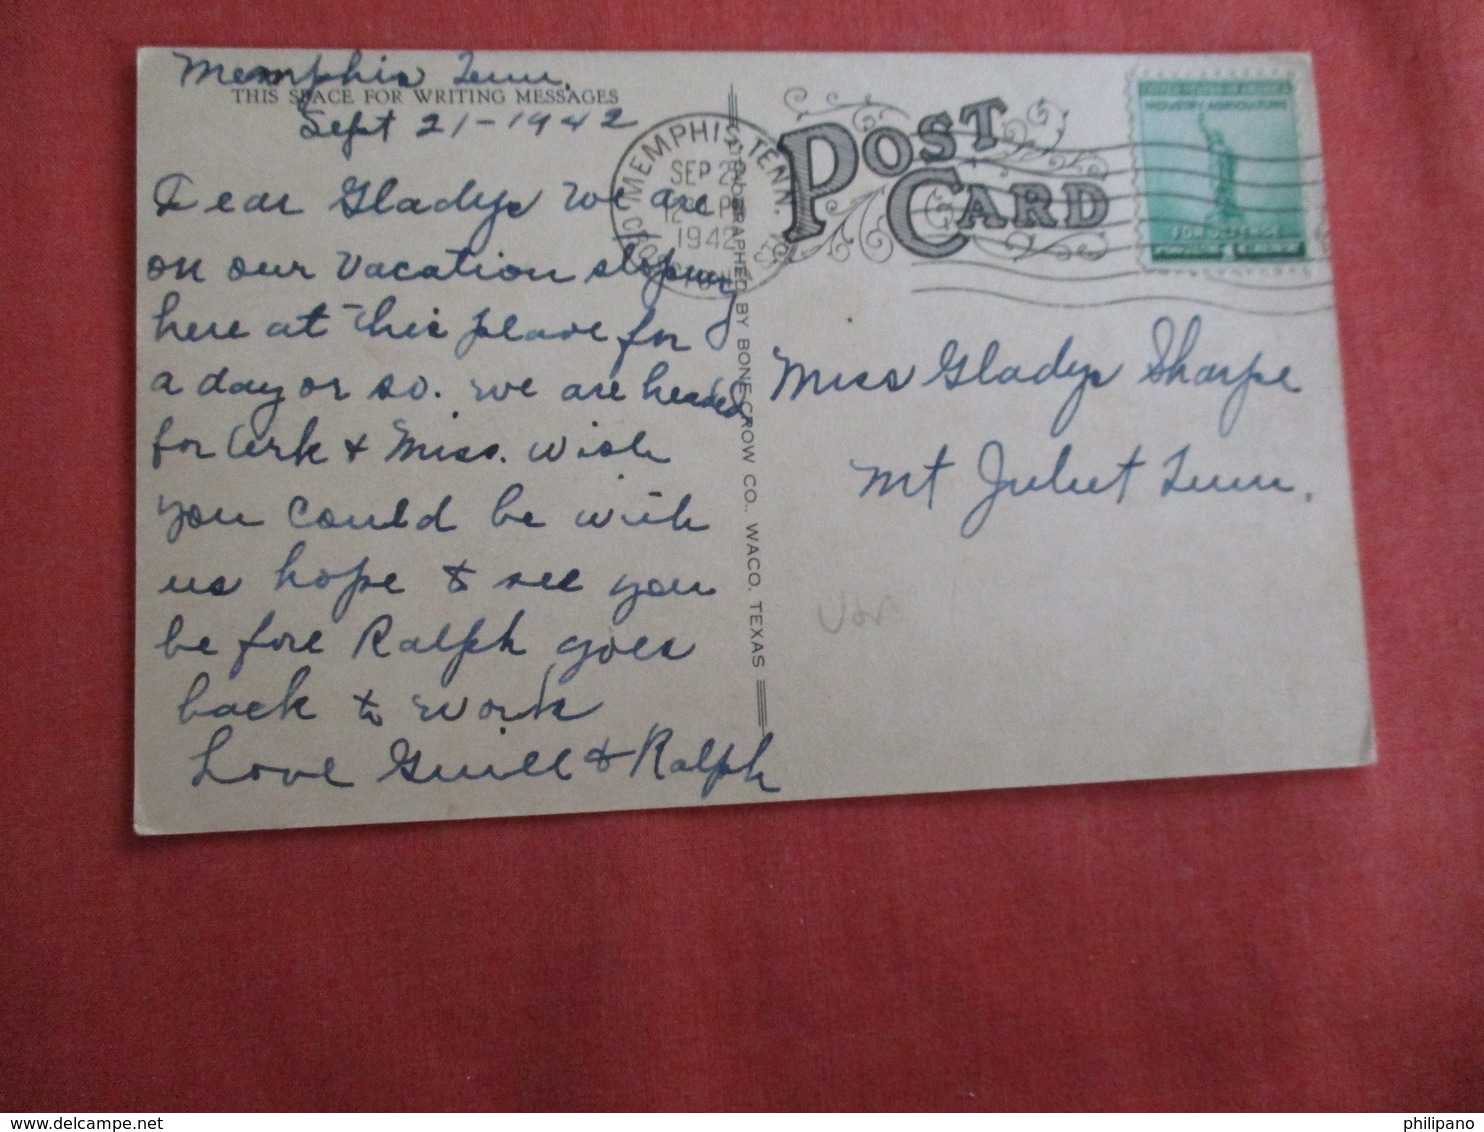 Memphis Tenn.
THIS SPACE FOR WRITING MESSAGES
Sept 21-1942
Dear Gladys we are
on our vacation stoping
here at this place for
a day or so. We are headed
for Ark & Miss. Wish
you could be with
us hope to see you
be fore Ralph goes
back to work
Love & Ralph
MEMPHIS, TENN.
SEP
1942
POST CARD
UNITED STATES OF AMERICA
INDUSTRY AGRICULTURE
FOR DEFENSE
Miss Gladys Sharpe
Mt Juliet Tenn.
GRAPHED BY BONE-CROW CO., WACO, TEXAS
philipano